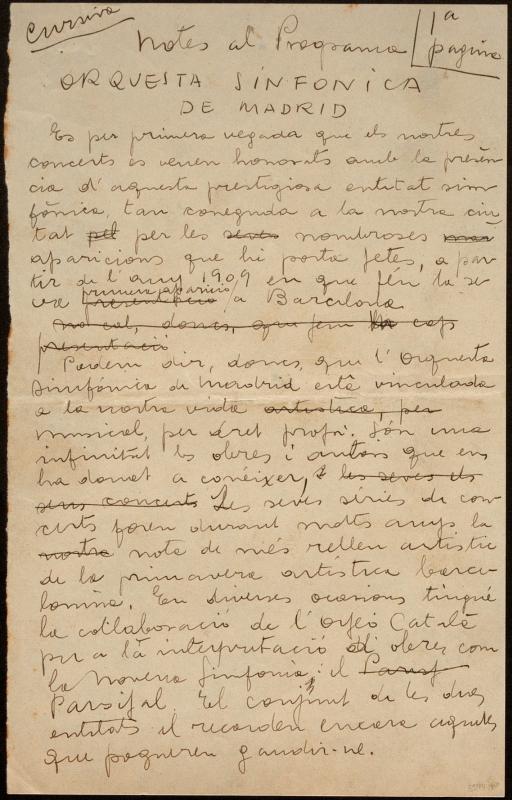 Cursiva
Notes al Programa
1ª
pagina
ORQUESTA SINFONICA
DE MADRID
Es per primera vegada que els nostres
concerts es veuen honorats amb la presèn
cia d'aquesta prestigiosa entitat sim
fònica, tan coneguda a la nostra ciu
tat pel per les seves nombroses
aparicions que hi porta fetes, a par
tir de l'any 1909 en que féu la se
va presentació primera aparició a Barcelona
no cal, doncs, que fem cap
presentació
Podem dir, doncs, que l'Orquesta
Simfónica de Madrid está vinculada
a la nostra vida artistica, per
musical, per dret propi. Són una
infinitat les obres i autors que ens
ha donat a conéixer, i les seves els
seus concerts Les seves sèries de con
certs foren durant molts anys la
nostra nota de més relleu artistic
de la primavera artistica barce-
lonina. En diverses ocasions tingué
la col·laboració de l'Orfeó Català
per a la interpretació d'obres com
la Novena Simfonia i el Parsif
Parsifal. El conjunt de les dues
entitats el recorden encara aquells
que pogueren gaudir-ne.